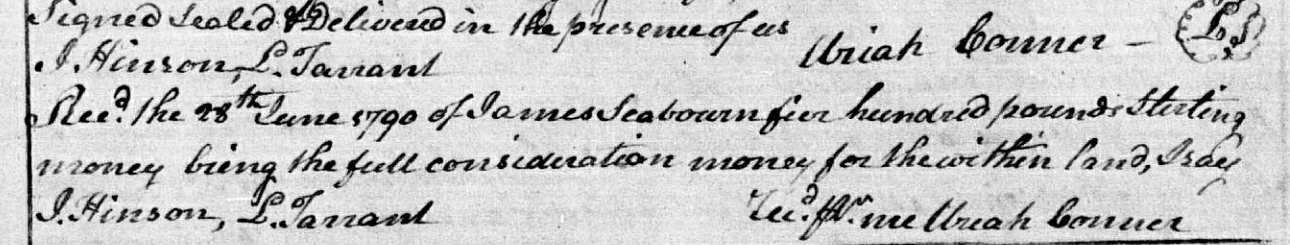 Signed Sealed & Delivered in the presence of us
Uriah Conner – L.S
J. Hinson, L. Tarrant
Rec.d the 28th June 1790 of James Seabourn five hundred pounds Sterling
money being the full consideration money for the within land, I say
J. Hinson, L. Tarrant Rec.d pr. me Uriah Conner